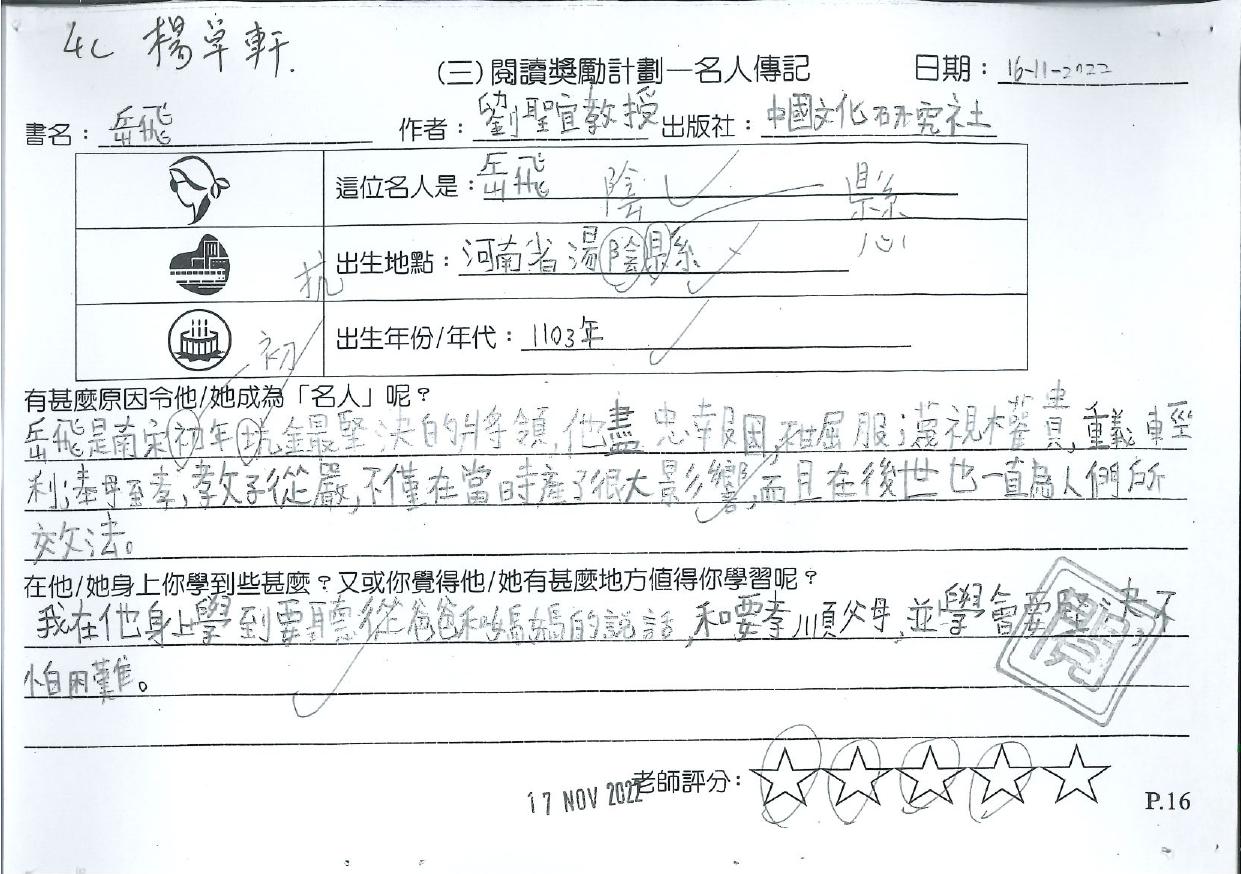 4C 楊卓軒.
(三)閱讀獎勵計劃—名人傳記 日期：16-11-2022
書名：岳飛 作者：劉聖宣教授 出版社：中國文化研究社
這位名人是：岳飛
陰 縣
出生地點：河南省湯陰縣
抗
出生年份/年代：1103年
初
有甚麼原因令他/她成為「名人」呢？
岳飛是南宋初年坑金最堅決的將領,他盡忠報國,不屈服;蔑視權貴,重義輕
利;奉母至孝,教子從嚴,不僅在當時產了很大影響,而且在後世也一直為人們所
效法。
在他/她身上你學到些甚麼？又或你覺得他/她有甚麼地方值得你學習呢？
我在他身上學到要聽從爸爸和媽媽的說話,和要孝順父母,並學會要堅決,不
怕困難。
閱
17 NOV 2022 老師評分：
P.16